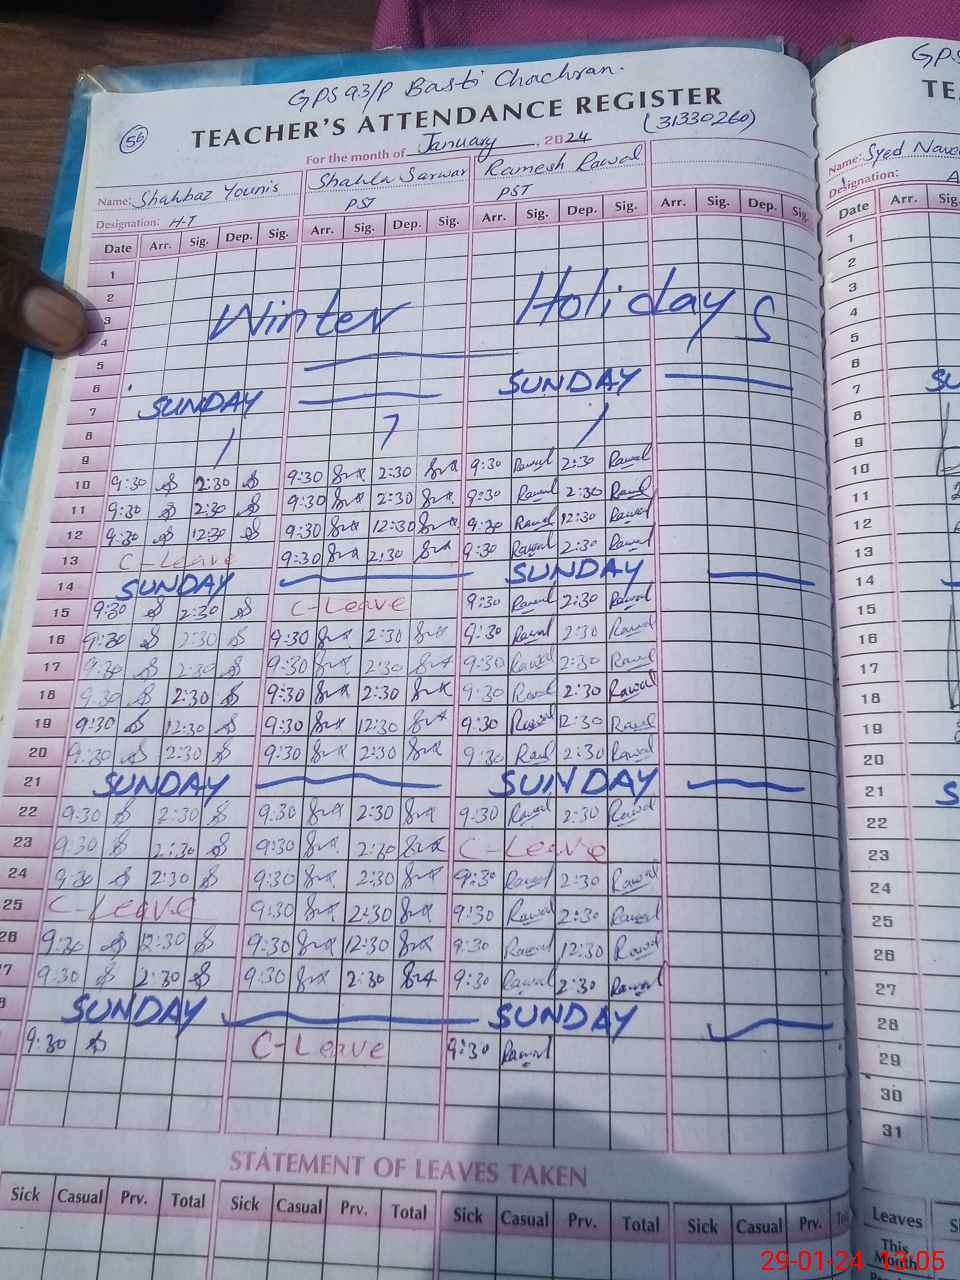 GPS 93/P Basti Chachran.
TEACHER'S ATTENDANCE REGISTER
56
For the month of January, 2024 (31330260)
Name: Shahbaz Younis Shahla Sarwar Ramesh Rawal
Designation: H-T PST PST
Date Arr. Sig. Dep. Sig. Arr. Sig. Dep. Sig. Arr. Sig. Dep. Sig. Arr. Sig. Dep. Sig.
1
2
3 Winter Holidays
4
5
6
7 SUNDAY SUNDAY
8
9
10 9:30 2:30 9:30 2:30 9:30 Rawal 2:30 Rawal
11 9:30 2:30 9:30 2:30 9:30 Rawal 2:30 Rawal
12 9:30 12:30 9:30 12:30 9:30 Rawal 12:30 Rawal
13 C-Leave 9:30 2:30 9:30 Rawal 2:30 Rawal
14 SUNDAY SUNDAY
15 9:30 2:30 C-Leave 9:30 Rawal 2:30 Rawal
16 9:30 2:30 9:30 2:30 9:30 Rawal 2:30 Rawal
17 9:30 2:30 9:30 2:30 9:30 Rawal 2:30 Rawal
18 9:30 2:30 9:30 2:30 9:30 Rawal 2:30 Rawal
19 9:30 12:30 9:30 12:30 9:30 Rawal 12:30 Rawal
20 9:30 2:30 9:30 2:30 9:30 Rawal 2:30 Rawal
21 SUNDAY SUNDAY
22 9:30 2:30 9:30 2:30 9:30 Rawal 2:30 Rawal
23 9:30 2:30 9:30 2:30 C-Leave
24 9:30 2:30 9:30 2:30 9:30 Rawal 2:30 Rawal
25 C-Leave 9:30 2:30 9:30 Rawal 2:30 Rawal
26 9:30 12:30 9:30 12:30 9:30 Rawal 12:30 Rawal
7 9:30 2:30 9:30 2:30 9:30 Rawal 2:30 Rawal
SUNDAY SUNDAY
9:30 C-Leave 9:30 Rawal
STATEMENT OF LEAVES TAKEN
Sick Casual Prv. Total Sick Casual Prv. Total Sick Casual Prv. Total Sick Casual Prv.
GPS
TE
Name: Syed Nave
Designation: A
Date Arr. Sig.
1
2
3
4
5
6
7 SU
8
9
10
11
12
13
14
15
16
17
18
19
20
21 S
22
23
24
25
26
27
28
29
30
31
Leaves
This
Month
29-01-24 13:05